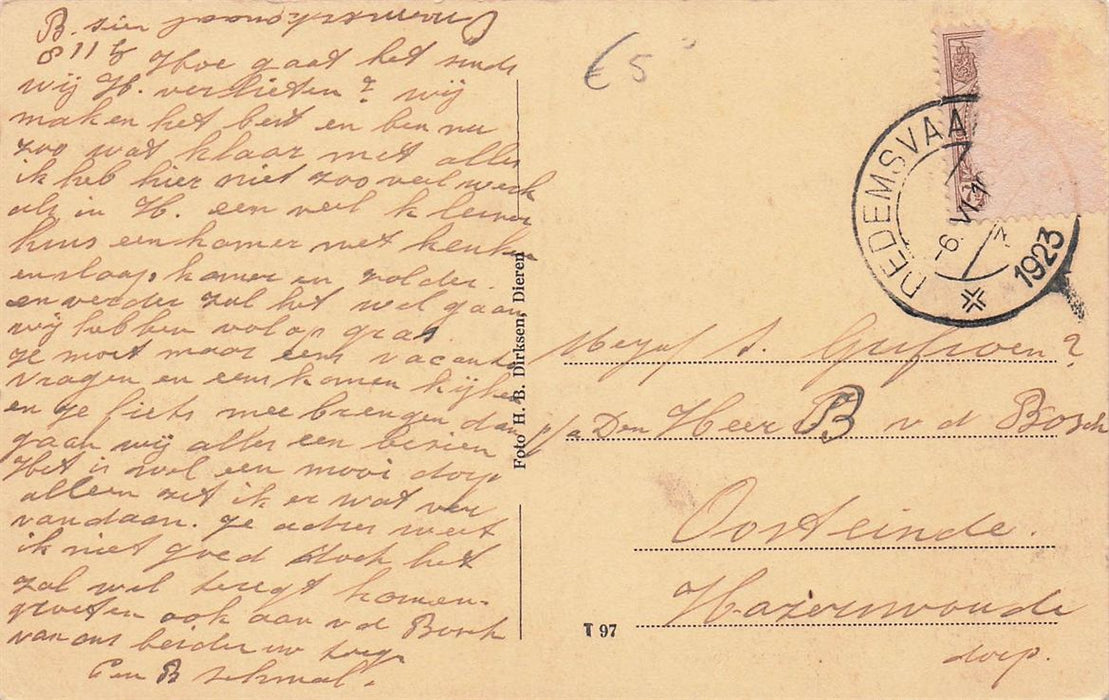 B. sier
8 11 5 Hoe gaat het sinds
wij H. verlieten? wij
maken het best en ben nu
zoo wat klaar met alles
ik heb hier niet zoo veel werk
als in H. een veel kleiner
huis een kamer met keuken
en slaap kamer en zolder.
en verder zal het wel gaan
wij hebben volop gras
ze moet maar eens vacantie
vragen en eens komen kijken
en ge fiets mee brengen dan
gaan wij alles een bezien
Het is wel een mooi dorp
alleen zit ik er wat ver
vandaan. ge adres weet
ik niet goed doch het
zal wel teregt komen.
groeten ook aan v d Bosch
van ons beiden uw
C en B schmal.
Foto H. B. Dirksen, Dieren
T 97
€ 5
DEDEMSVAA
-6.VI
1923
Mejuf A.
p/a Den Heer B v d Bosch
Oosteinde.
Hazerswoude
dorp.